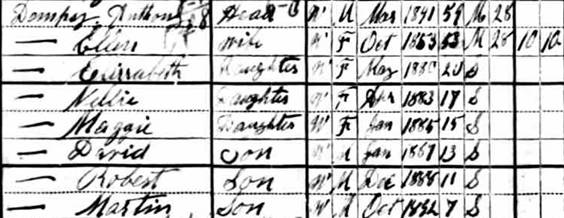 Dempsey, Anthony Head W M Mar 1841 59 M 28
— Ellen Wife W F Oct 1853 M 28 10 10
— Elizabeth Daughter W F May 1880 20 S
— Nellie Daughter W F Apr 1883 17 S
— Maggie Daughter W F Jan 1885 15 S
— David Son W M Jan 1887 13 S
— Robert Son W M Dec 1888 11 S
— Martin Son W M Oct 1892 7 S